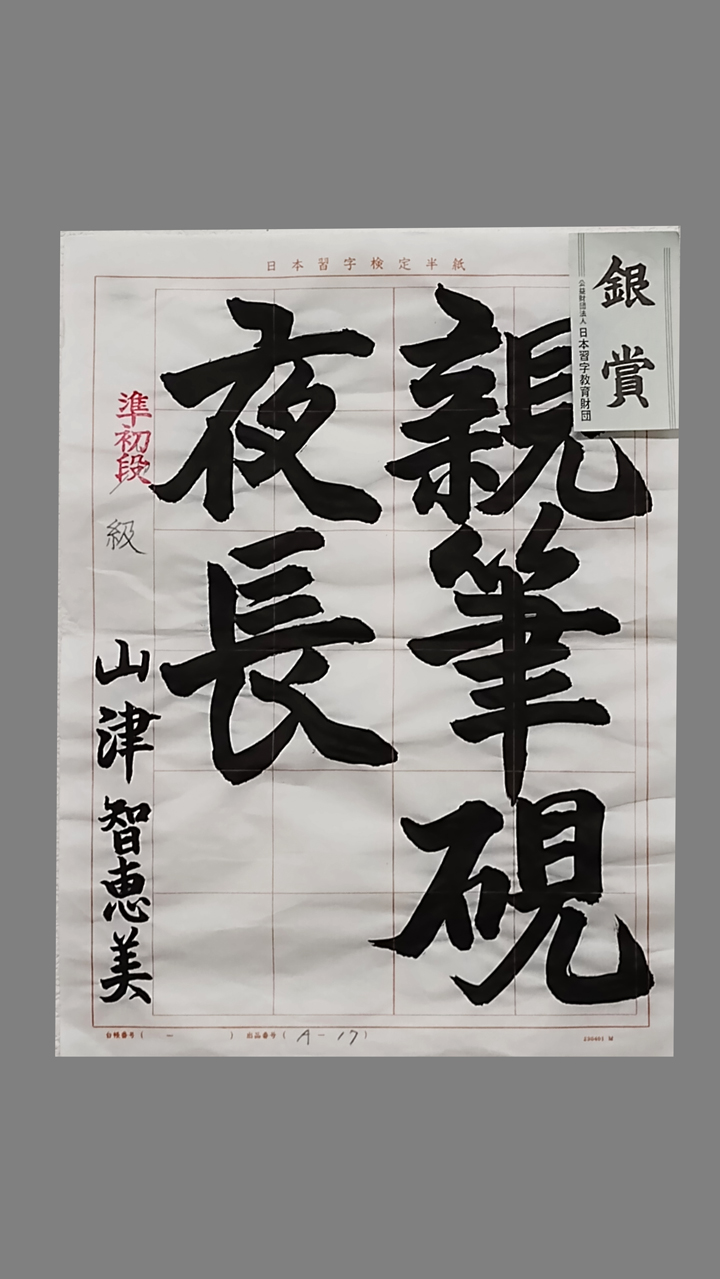 日本習字検定半紙
銀賞
公益財団法人 日本習字教育財団
親筆硯
夜長
準初段
級
山津智恵美
台帳番号( - ) 出品番号( A-17 )
230401 M